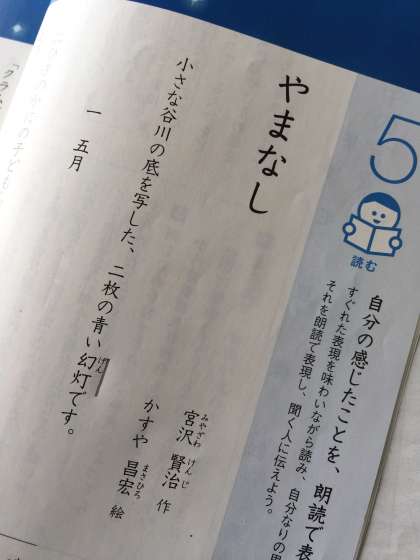 5
読む
自分の感じたことを、朗読で表
すぐれた表現を味わいながら読み、自分なりの思
それを朗読で表現し、聞く人に伝えよう。
やまなし
宮沢 賢治 作
みやざわ けんじ
かすや 昌宏 絵
まさひろ
小さな谷川の底を写した、二枚の青い幻灯です。
げん
一 五月